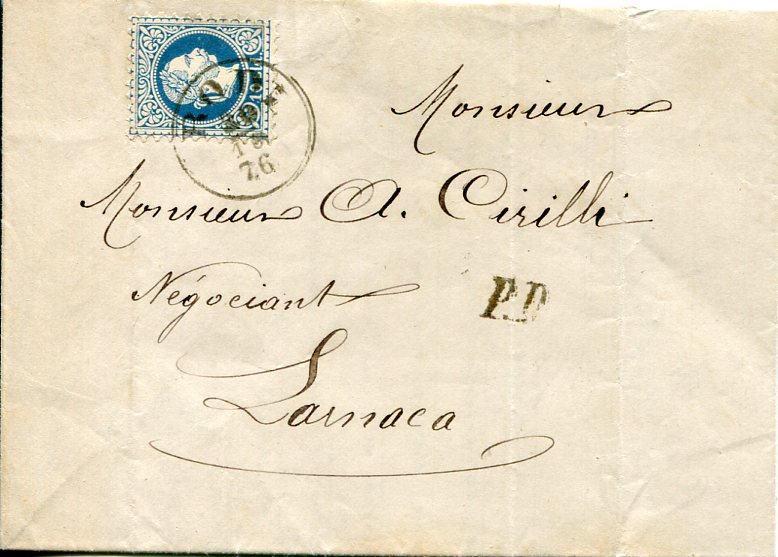 Monsieur
Monsieur A. Cirilli
Négociant
P.D
Larnaca
76